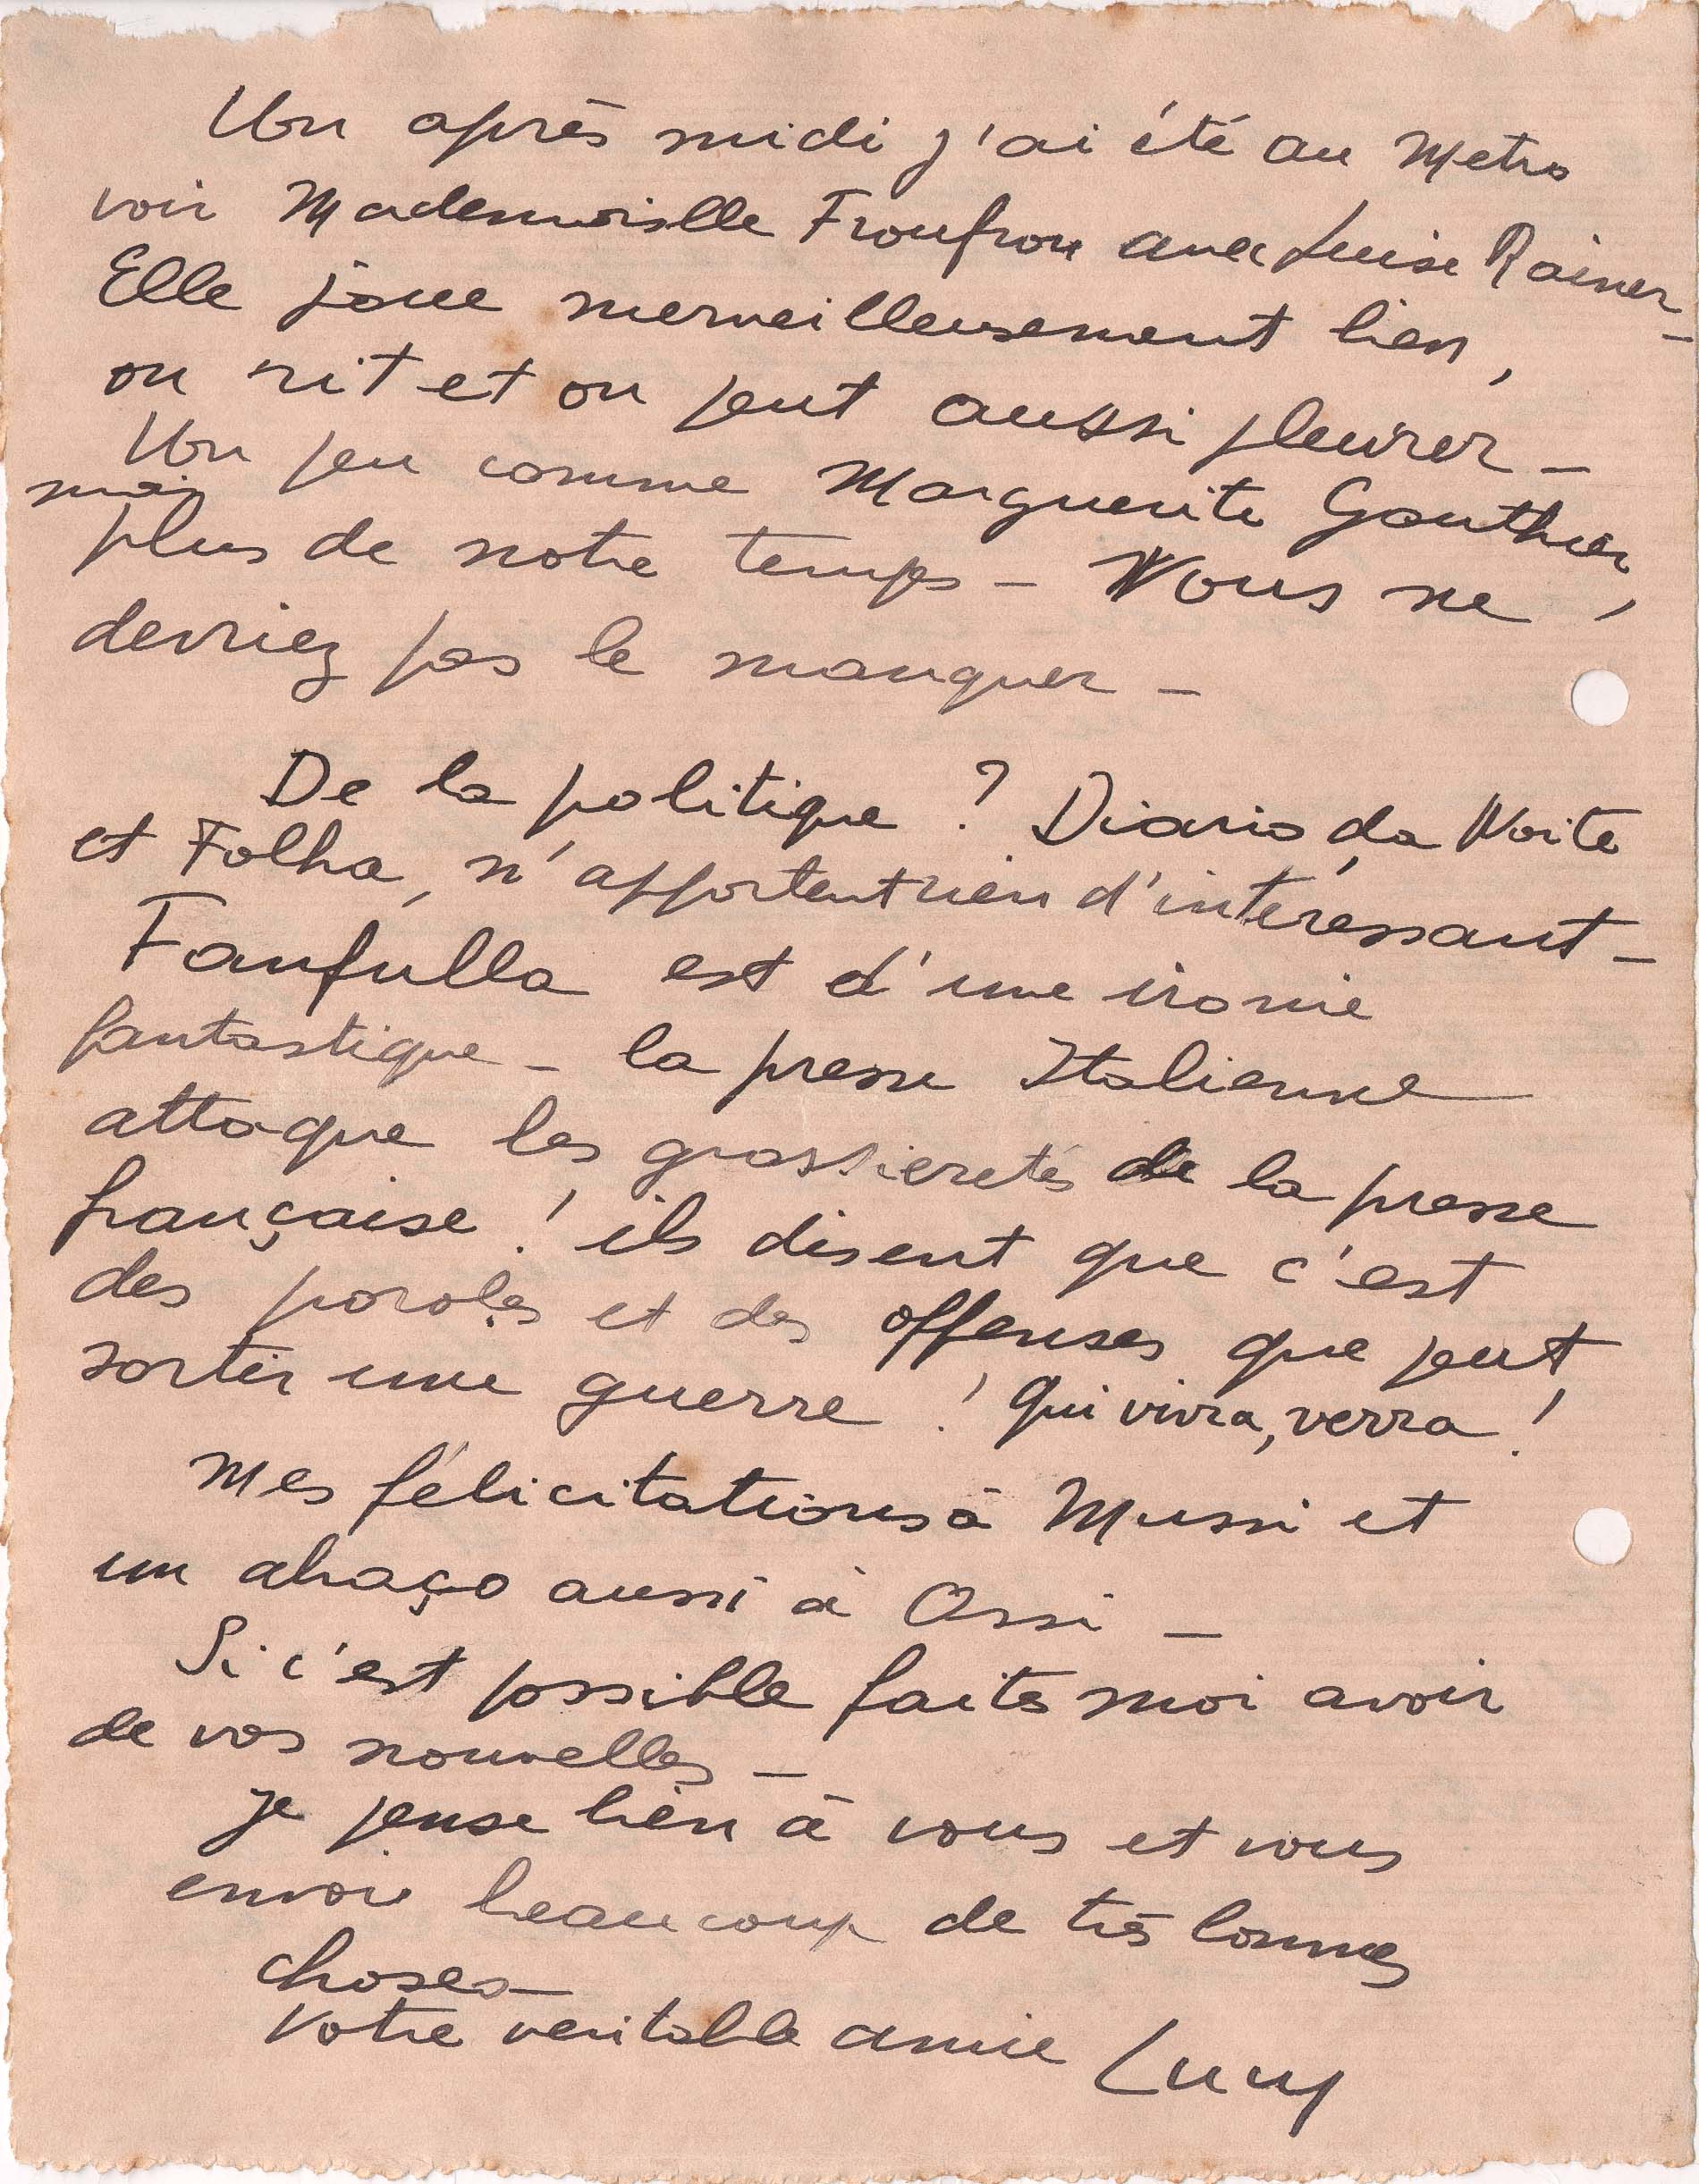 Un après midi j'ai été au Metro
voir Mademoiselle Froufrou avec Luise Rainer -
Elle joue merveilleusement bien,
on rit et on peut aussi pleurer -
Un peu comme Marguerite Gauthier,
mais plus de notre temps - Vous ne
devriez pas le manquer -
De la politique ? Diario da Noite
et Folha, n'apportent rien d'intéressant -
Fanfulla est d'une ironie
fantastique - la presse Italienne
attaque les grossieretés de la presse
française ! ils disent que c'est
des paroles et des offenses que peut
sortir une guerre ! Qui vivra, verra !
Mes félicitations à Mussi et
un abraço aussi à Ossi -
Si c'est possible faites moi avoir
de vos nouvelles -
Je pense bien à vous et vous
envoie beaucoup de très bonnes
choses -
Votre veritable amie Lucy